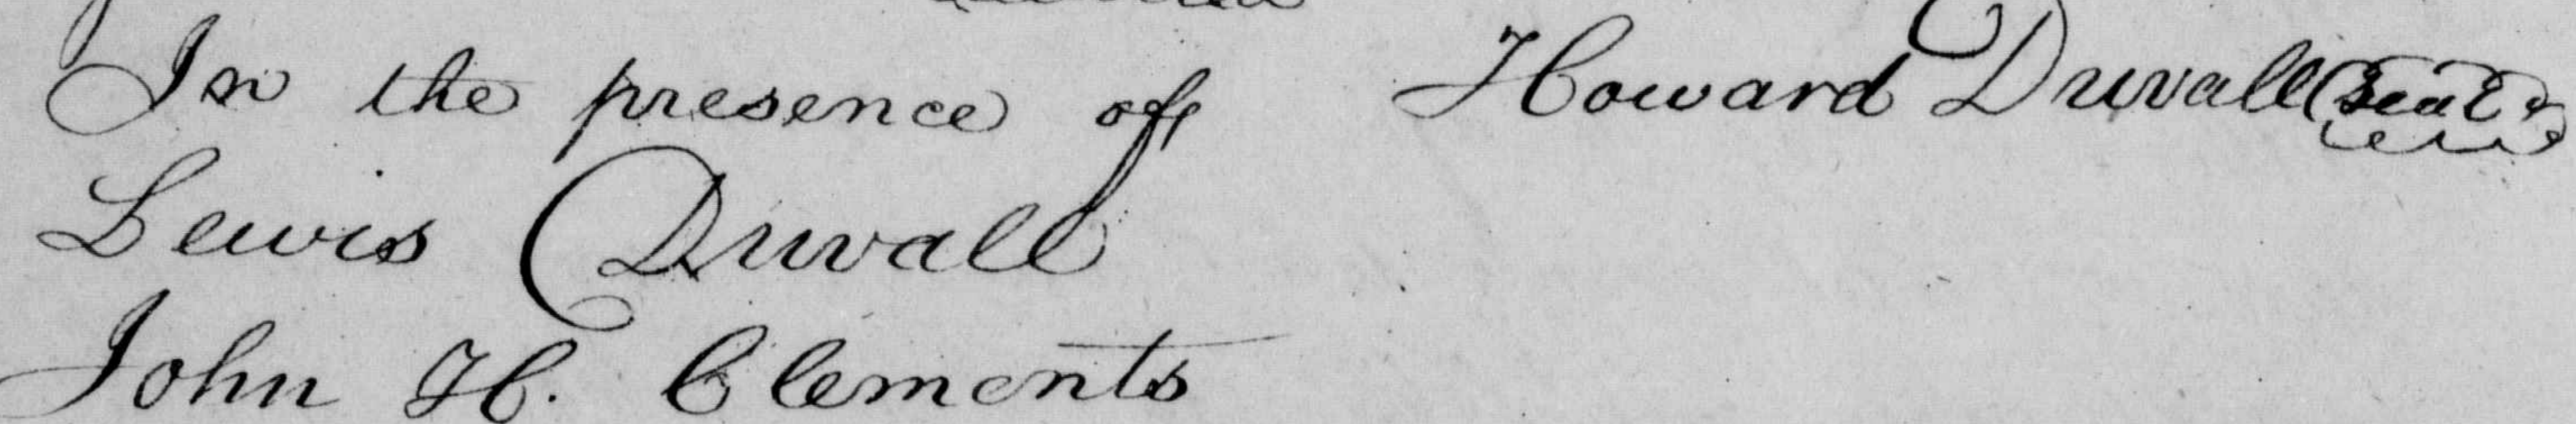 In the presence of Howard Duvall Seal
Lewis Duvall
John H. Clements